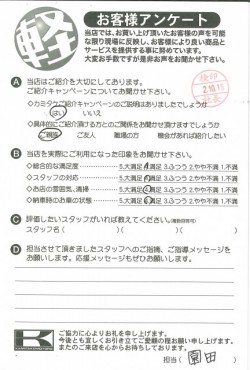 軽
お客様アンケート
当店では、お買い上げ頂いたお客様の声を可能
な限り現場に反映し、お客様により良い商品と
サービスを提供する事に努めています。
大変お手数ですが是非お声をお聞かせ下さい。
A 当店はご紹介を大切にしております。
ご紹介キャンペーンについてお聞かせ下さい。
◇カミタケご紹介キャンペーンのご説明はありましたでしょうか
はい いいえ
◇具体的にご紹介頂けるかたとのご関係をお聞かせ頂けますでしょうか
ご親族 ご友人 職場の方 機会があれば紹介したい
B 当店を実際にご利用になった印象をお聞かせ下さい。
◇総合的な満足度 5.大満足 4.満足 3.ふつう 2.やや不満 1.不満
◇スタッフの対応 5.大満足 4.満足 3.ふつう 2.やや不満 1.不満
◇お店の雰囲気、清掃 5.大満足 4.満足 3.ふつう 2.やや不満 1.不満
◇納車時のお車の状態 5.大満足 4.満足 3.ふつう 2.やや不満 1.不満
C 評価したいスタッフがいれば教えてください。
スタッフ名( )( )( )
D 担当させて頂きましたスタッフへのご指摘、ご指導メッセージを
お願いします。応援メッセージもぜひお願いします。
K
ご協力に心よりお礼を申し上げます。
今後とも宜しくお引き立てご愛顧の程お願い申し上げます。
またのご来店を心からお待ちしております。
担当( 園田 )